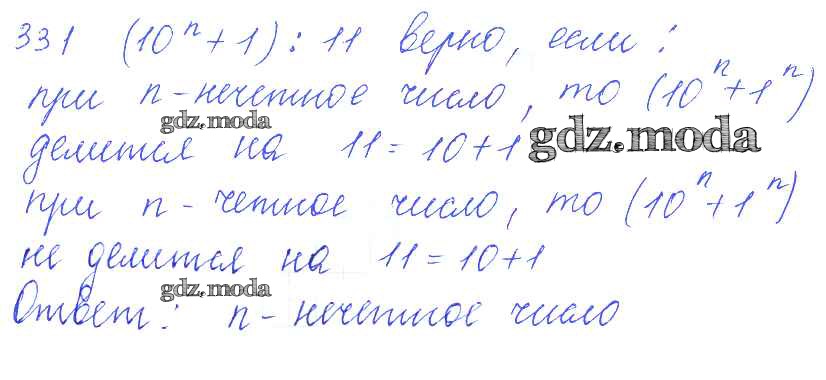 331 (10ⁿ + 1) : 11 верно, если :
при n - нечетное число, то (10ⁿ + 1ⁿ)
gdz.moda
делится на 11 = 10 + 1
gdz.moda
при n - четное число, то (10ⁿ + 1ⁿ)
не делится на 11 = 10 + 1
gdz.moda
Ответ : n - нечетное число